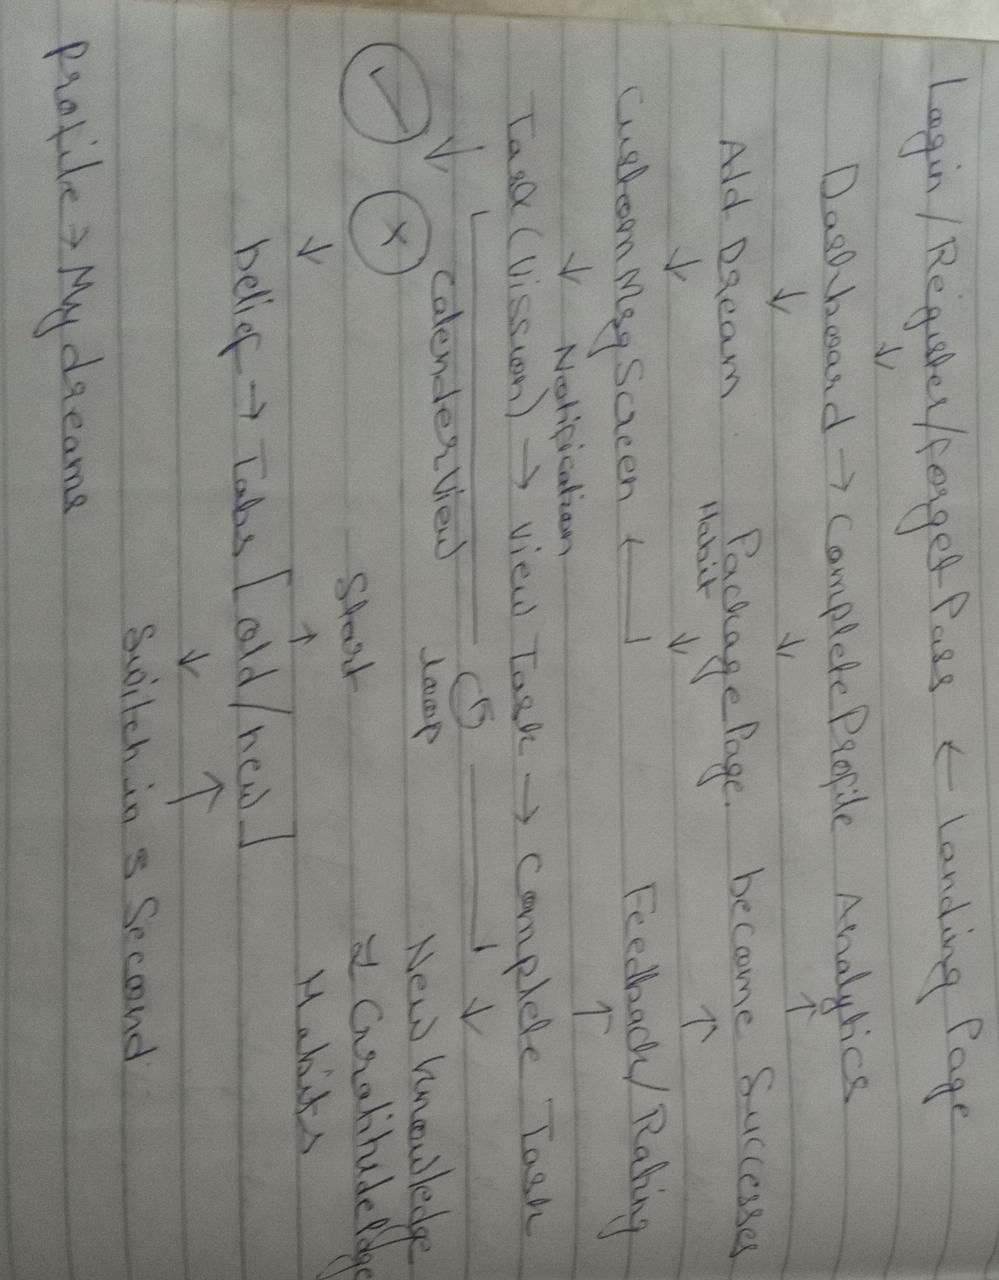 Login/Register/forget Pass ← Landing Page
↓
Dashboard → Complete Profile Analytics
↓ ↓ ↑
Add Dream Package Page. become Successes
Habit
↓ ↓ ↑
Custom Msg Screen ← Feedback/Rating
↓ Notification ↑
Task (Vission) → View Task → Complete Task
↓ ↓
Calender View loop New Knowledge
✓ × & Gratitude Page
Start Habits
↓ ↑
belief → Tabs [old/new]
↓ ↑
Switch in Second
Profile → My dreams